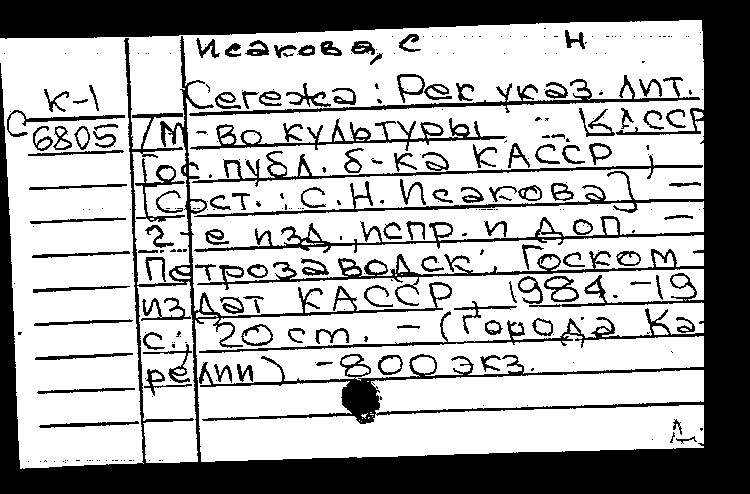 Исакова, С Н
К-1
С 6805
Сегежа : Рек. указ. лит.
/М-во культуры КАССР
Гос. публ. б-ка КАССР ;
[Сост. : С.Н. Исакова] —
2-е изд., испр. и доп. —
Петрозаводск : Госком-
издат КАССР, 1984. - 19
с.; 20 cm. — (Города Ка-
релии) - 800 экз.